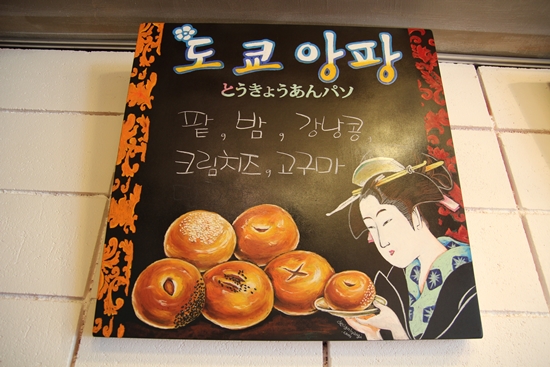 도쿄앙팡
とうきょうあんパソ
팥, 밤, 강낭콩,
크림치즈, 고구마